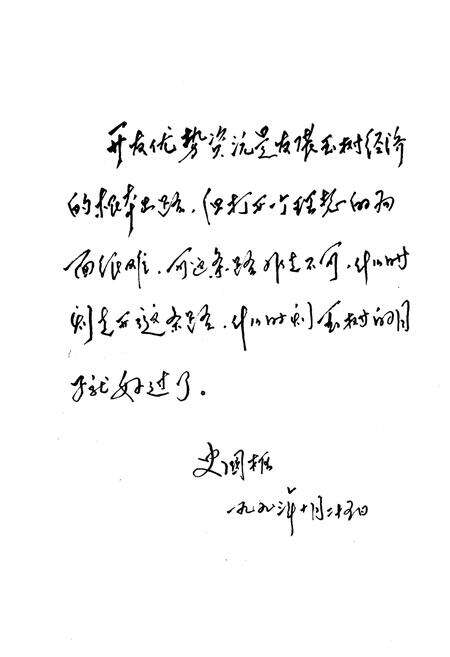 开发优势资源是发展玉树经济
的根本出路，但打开个理想的局
面很难，可这条路非走不可，什么时
刻走开这条路，什么时刻玉树的日
子就好过了。
史国枢
一九九三年十月二十五日